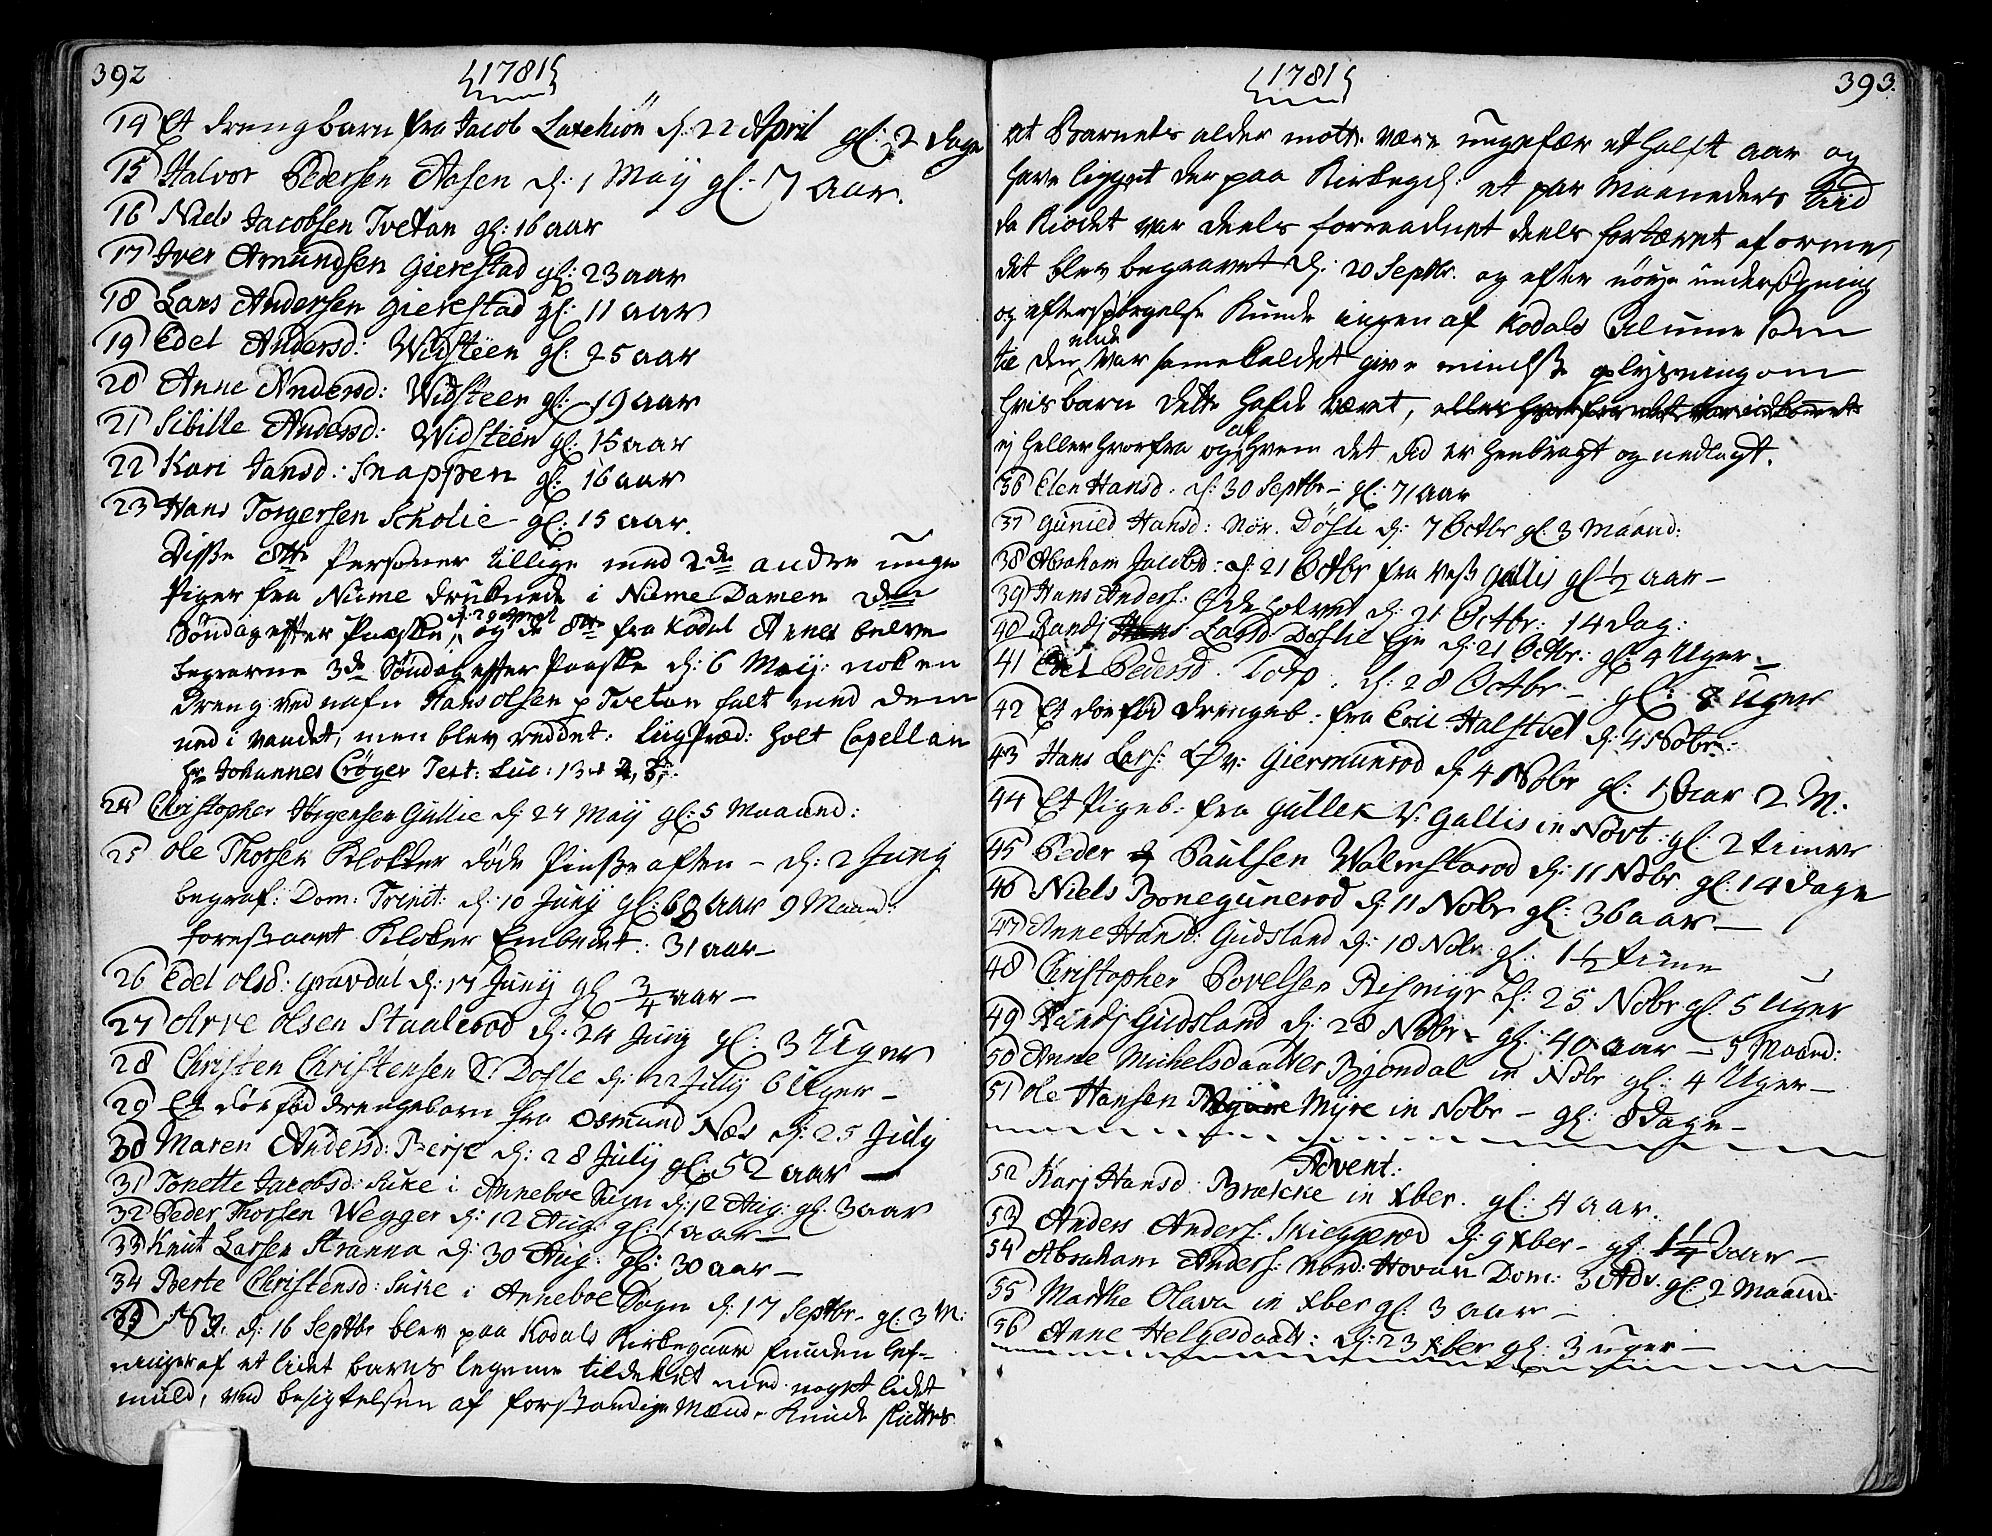 392
1781
14 Et drengbarn fra Jacob Laxehiön d: 22 April gl: 2 dage
15 Halvor Pedersen Aasen d: 1 Maÿ gl: 7 aar.
16 Niels Jacobsen Tvetan gl: 16 aar
17 Iver Amundsen Gierestad gl: 23 aar
18 Lars Andersen Gierestad gl: 11 aar
19 Edel Andersd: Widsteen gl: 25 aar
20 Anne Andersd: Widsteen gl: 19 aar
21 Sibille Andersd: Widsteen gl: 15 aar
22 Kari Jansd: Snappen gl: 16 aar
23 Hans Torgersen Scholie gl: 15 aar.
Disse 8tte Personer tillige med 2de andre unge
Piger fra Nume druknede i Nume Damen den
Söndag efter Paaske, d: 29 April og de 8tte fra Kodal Annex bleve
begravne 3de Söndag efter Paaske d: 6 Maÿ: nok en
Dreng ved nafn Hans Olsen p Tvetan falt med dem
ned i vandet, men blev reddet: Liigpræd: holt Capellan
Hr Johannes Cröger Text: Luc: 13
24 Christopher Jörgensen Gullie d: 24 Maÿ gl: 5 Maaned:
25 Ole Thorsen Klokker döde Pintse aften – d: 2 Junÿ
begraf: Dom: Trinit: d: 10 Junÿ gl: 68 aar 9 Maan:
forestaaet Kloker Embedet: 31 aar –
26 Edel Olsd: Gravdal d: 17 Junÿ gl 3/4 aar –
27 Arve Olsen Staalerød d: 24 Junÿ gl: 3 Uger
28 Christen Christensen S: Dofle d: 22 Julÿ 6 Uger –
29 Et död föd drengebarn fra Osmund Næs d: 25 Julÿ
30 Maren Andersd: Berje d: 28 Julÿ gl: 52 aar –
31 Tonette Jacobsd: Suke i Anneboe Sogn d: 12 Aug: gl: 3 aar
32 Peder Thorsen Wegger d: 12 Aug: gl: 1 aar –
33 Knut Larsen Stranna d: 30 Aug: gl: 30 aar –
34 Berte Christensd: Suke i Anneboe Sogn d: 17 Septbr – gl: 3 M:
35 NB. d: 16 Septbr blev paa Kodals Kirkegaard funden lef-
ninger af et lidet barns legeme tildekket med noget lidet
muld, ved besigtelsen af forstandige Mænd kunde sluttes
393.
1781
at Barnets alder motte være ungefær et halft aar og
have ligget der paa Kirkegd: et par Maaneders Tiid
da Kiödet var deels forraadnet deels fortæret af orme,
det blev begravet d: 20 Septbr. og efter nöye undersögning
og efterspörgelse kunde ingen af Kodals Almue som
til den ende var samekaldet give mindste oplysning om
hvis barn dette hafde været, eller
ej heller hvorfra og af hvem det did er henbragt og nedlagt.
36 Elen Hansd: d: 30 Septbr – gl: 71 aar
37 Gunied Hansd: Nor. Döfle d: 7 Octbr gl: 3 Maand:
38 Abraham Jacobs: d: 21 Octbr fra Vest Gallis gl 1/2 aar –
39 Hans Anders: Ödeholvet d: 21 Octbr: 14 dag:
40 Randj Larsd Doflie Eje d: 21 Octbr: gl: 4 Uger –
41 Edel Pedersd. Torp. d: 28 Octbr – gl: 8 Uger
42 Et död föd drengeb: fra Eric Halstvet d: 4 Nobr:
43 Hans Lars: Öv: Giermunrod d: 4 Nobr gl: 1 Aar 2 M.
44 Et Pigeb: fra Gullek V: Gallis in Novt: gl: 2 timer
45 Peder Paulsen Walmstarod d: 11 Nobr gl: 14 dage
46 Niels Bonegunerod d: 11 Nobr gl: 36 aar –
47 Anne Hansd: Gudsland d: 18 Nobr gl: 1 1/2 time
48 Christopher Povelsen Rismyr d: 25 Nobr gl: 5 Uger
49 Randj Gudsland d: 28 Nobr – gl: 40 aar – 5 Maand:
50 Anne Michelsdaatter Bjøndal in Nobr gl: 4 Uger –
51 Ole Hansen Myre in Nobr – gl: 8 dage –
Advent:
52 Karj Hansd. Brække in Xber. gl: 4 aar.
53 Anders Anders: Skieggerød d: 9 Xber – gl: 1 1/4 aar –
54 Abraham Anders: Nord: Hovan Dom: 3 Adv. gl: 2 Maand:
55 Marthe Olava in Xber gl: 3 aar –
56 Anne Helgesdaatt: d: 23 Xber gl: 3 uger –